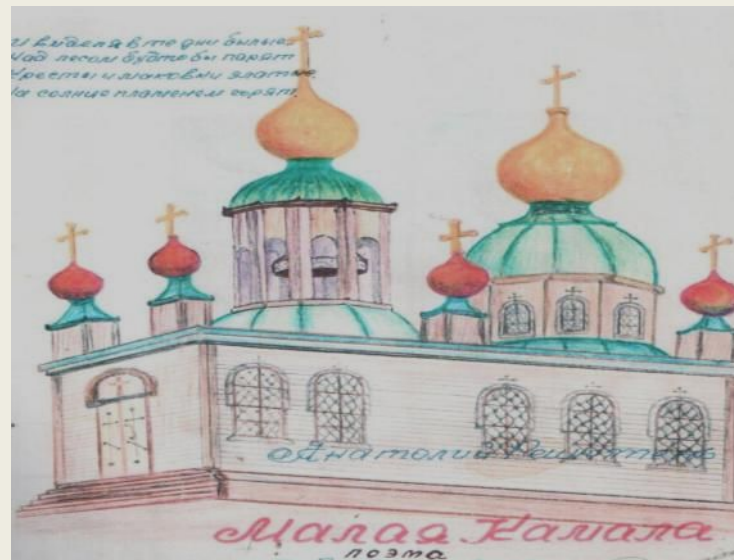 И виделя в те дни былые
Над лесом будто бы парят
Кресты и маковки златые
На солнце пламенем горят
Анатолий
Малая Камала
поэма